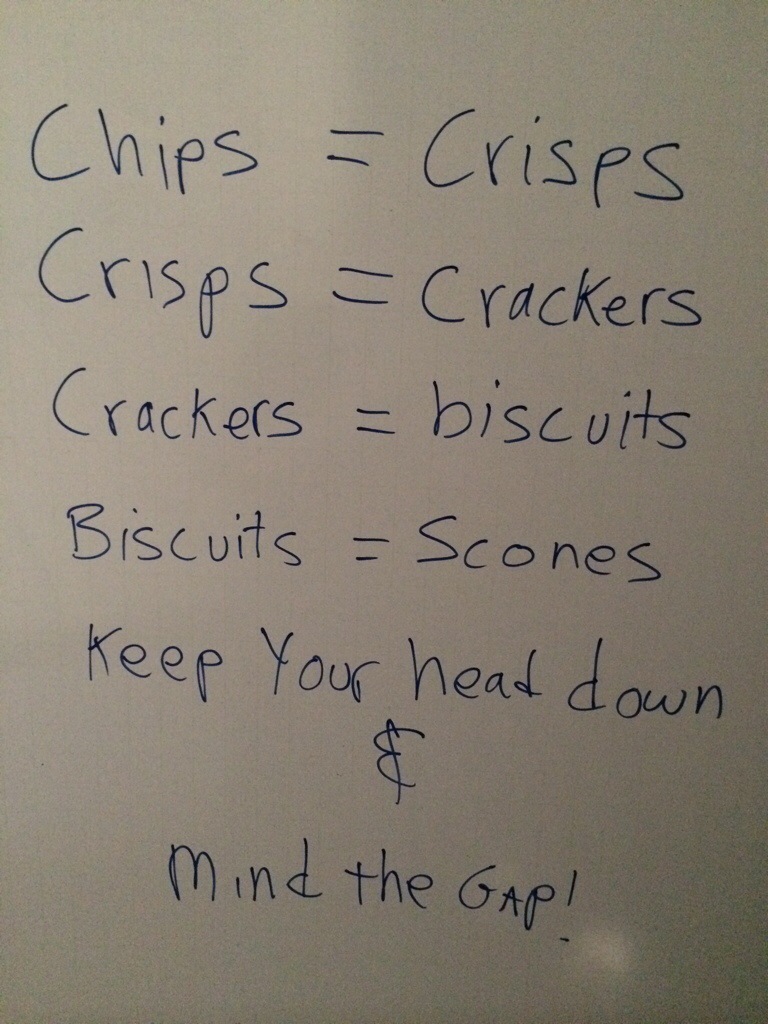 Chips = Crisps
Crisps = Crackers
Crackers = biscuits
Biscuits = Scones
Keep Your head down
&
Mind the GAP!